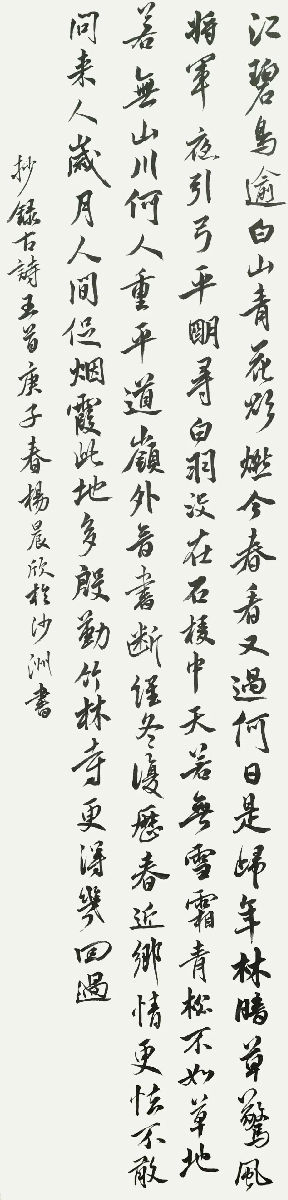 江碧鳥逾白山青花欲燃今春看又過何日是歸年林暗草驚風
將軍夜引弓平明尋白羽沒在石棱中天若無雪霜青松不如草地
若無山川何人重平道嶺外音書断經冬復歷春近鄉情更怯不敢
問来人歲月人間促烟霞此地多殷勤竹林寺更得幾回過
抄錄古詩五首庚子春楊晨欣於沙洲書